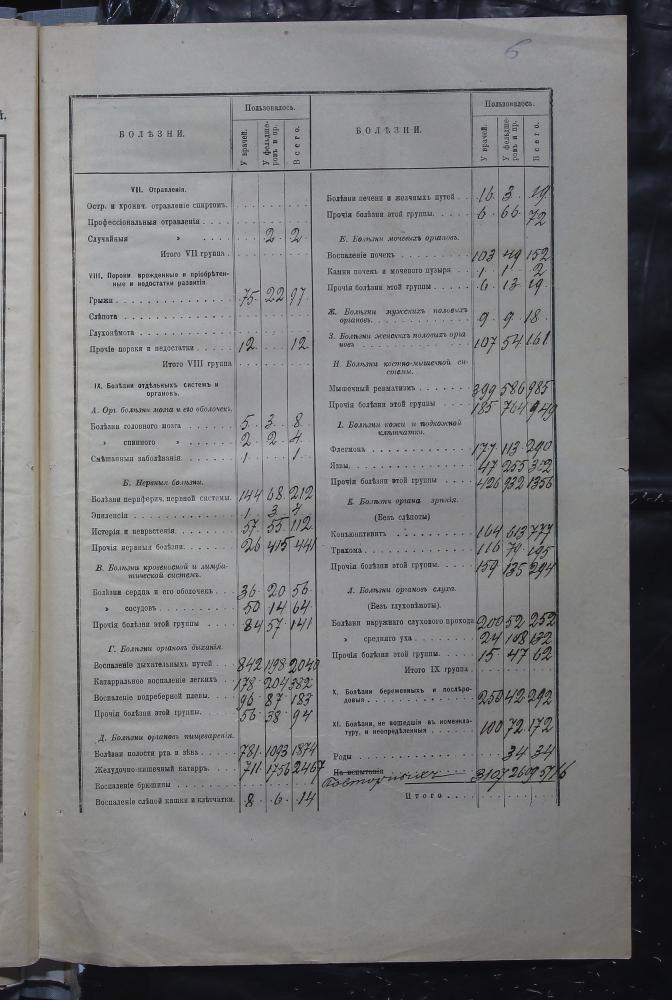 6
Пользовалось.
БОЛѢЗНИ.
У врачей.
У фельдше-
ровъ и пр.
Всего.
VII. Отравленія.
Остр. и хронич. отравленіе спиртомъ.
Профессіональныя отравленія
Случайныя » 2 2
Итого VII группа
VIII. Пороки врожденные и пріобрѣтен-
ные и недостатки развитія
Грыжи 75 22 97
Слѣпота
Глухонѣмота
Прочіе пороки и недостатки 12 12
Итого VIII группа
IX. Болѣзни отдѣльныхъ системъ и
органовъ.
А. Орг. болѣзни мозга и его оболочекъ.
Болѣзни головного мозга 5 3 8
» спинного » 2 2 4
Смѣшанныя заболѣванія. 1 1
Б. Нервныя болѣзни.
Болѣзни периферич. нервной системы. 144 68 212
Эпилепсія 1 3 4
Истерія и неврастенія. 57 55 112
Прочія нервныя болѣзни. 26 415 441
В. Болѣзни кровеносной и лимфа-
тической системъ.
Болѣзни сердца и его оболочекъ 36 20 56
» сосудовъ 50 14 64
Прочія болѣзни этой группы 84 57 141
Г. Болѣзни органовъ дыханія.
Воспаленіе дыхательныхъ путей 842 1198 2040
Катарральное воспаленіе легкихъ 178 204 382
Воспаленіе подреберной плевы. 96 87 183
Прочія болѣзни этой группы. 56 38 94
Д. Болѣзни органовъ пищеваренія.
Болѣзни полости рта и зѣва 781 1093 1874
Желудочно-кишечный катарръ. 711 1756 2467
Воспаленіе брюшины
Воспаленіе слѣпой кишки и клѣтчатки. 8 6 14
Пользовалось.
БОЛѢЗНИ.
У врачей.
У фельдше-
ровъ и пр.
Всего.
Болѣзни печени и желчныхъ путей 16 3 19
Прочія болѣзни этой группы. 6 66 72
Е. Болѣзни мочевыхъ органовъ.
Воспаленіе почекъ 103 49 152
Камни почекъ и мочевого пузыря 1 1 2
Прочія болѣзни этой группы 6 13 19
Ж. Болѣзни мужскихъ половыхъ
органовъ. 9 9 18
З. Болѣзни женскихъ половыхъ орга
новъ 107 54 161
И. Болѣзни костно-мышечной си-
стемы.
Мышечный ревматизмъ 399 586 985
Прочія болѣзни этой группы 185 764 949
І. Болѣзни кожи и подкожной
клѣтчатки.
Флегмона 177 113 290
Язвы. 47 255 302
Прочія болѣзни этой группы 426 932 1356
К. Болѣзни органа зрѣнія.
(Безъ слѣпоты)
Конъюнктивитъ 164 613 777
Трахома 116 79 195
Прочія болѣзни этой группы. 159 135 294
Л. Болѣзни органовъ слуха.
(Безъ глухонѣмоты).
Болѣзни наружнаго слухового прохода 200 52 252
» средняго уха 24 108 132
Прочія болѣзни этой группы. 15 47 62
Итого IX группа
X. Болѣзни беременныхъ и послѣро-
довыя 250 42 292
XI. Болѣзни, не вошедшія въ номенкла-
туру, и неопредѣленныя 100 72 172
Роды 34 34
На испытаніи
Повторныхъ 3107 2609 5716
Итого